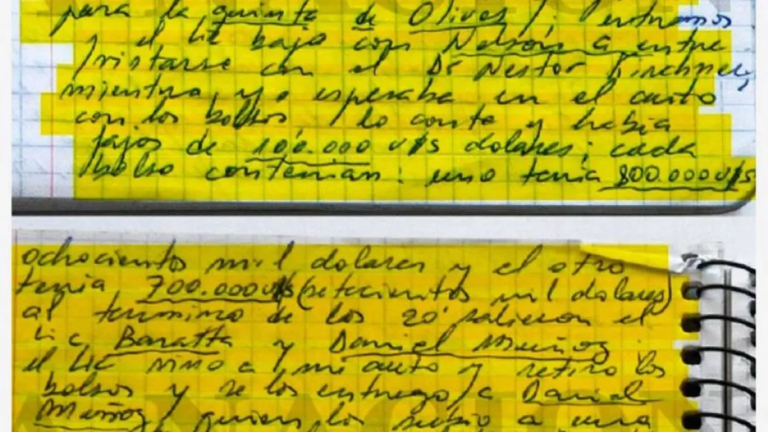 para la quinta de Olivos /. entramos
y el Lic bajo con Nelson a entre
/vistarse con el Dr Nestor Kirchner,
mientras yo esperaba en el auto
con los bolsos / lo conte y habia
fajos de 100.000 u$s dolares; cada
bolso contenian: uno tenia 800.000 u$s
ochocientos mil dolares y el otro
tenia 700.000 u$s (setecientos mil dolares)
al termino de los 20' salieron el
Lic Baratta y Daniel Muñoz.
el Lic vino a mi auto y retiro los
bolsos y se los entrego / a Daniel
Muñoz / quien los subio a una